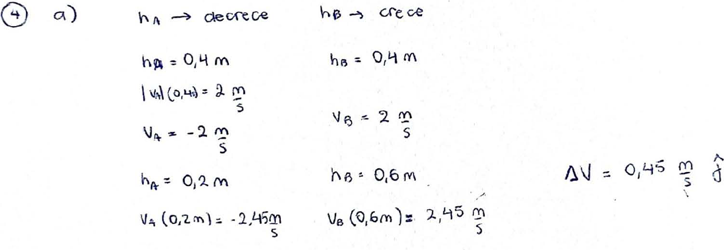 4 a) hA → decrece hB → crece
hA = 0,4 m hB = 0,4 m
|vA|(0,4s) = 2 m/s
VA = -2 m/s VB = 2 m/s
hA = 0,2 m hB = 0,6 m ΔV = 0,45 m/s ĵ
VA (0,2m) = -2,45 m/s VB (0,6m) = 2,45 m/s